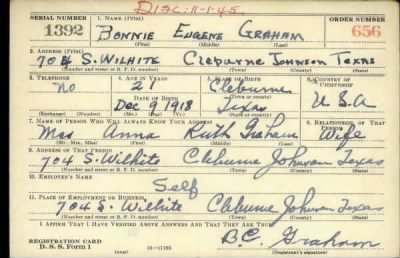 DISC: 11-1-45.
SERIAL NUMBER 1. NAME (Print) ORDER NUMBER
1392 BONNIE EUGENE GRAHAM 656
(First) (Middle) (Last)
2. ADDRESS (Print)
704 S. WILHITE Cleburne Johnson Texas
(Number and street or R. F. D. number) (Town) (County) (State)
3. TELEPHONE 4. AGE IN YEARS 5. PLACE OF BIRTH 6. COUNTRY OF CITIZENSHIP
No 21 Cleburne
DATE OF BIRTH (Town or county)
Dec 9 1918 Texas U.S.A
(Mo.) (Day) (Yr.) (State or country)
7. NAME OF PERSON WHO WILL ALWAYS KNOW YOUR ADDRESS 8. RELATIONSHIP OF THAT PERSON
Mrs Anna Ruth Graham Wife
(Mr., Mrs., Miss) (First) (Middle) (Last)
9. ADDRESS OF THAT PERSON
704 S. Wilhite Cleburne Johnson Texas
(Number and street or R. F. D. number) (Town) (County) (State)
10. EMPLOYER'S NAME
Self
11. PLACE OF EMPLOYMENT OR BUSINESS
704 S. Wilhite Cleburne Johnson Texas
(Number and street or R. F. D. number) (Town) (County) (State)
I AFFIRM THAT I HAVE VERIFIED ABOVE ANSWERS AND THAT THEY ARE TRUE.
B.E. Graham
REGISTRATION CARD
D. S. S. Form 1 (over) (Registrant's signature)